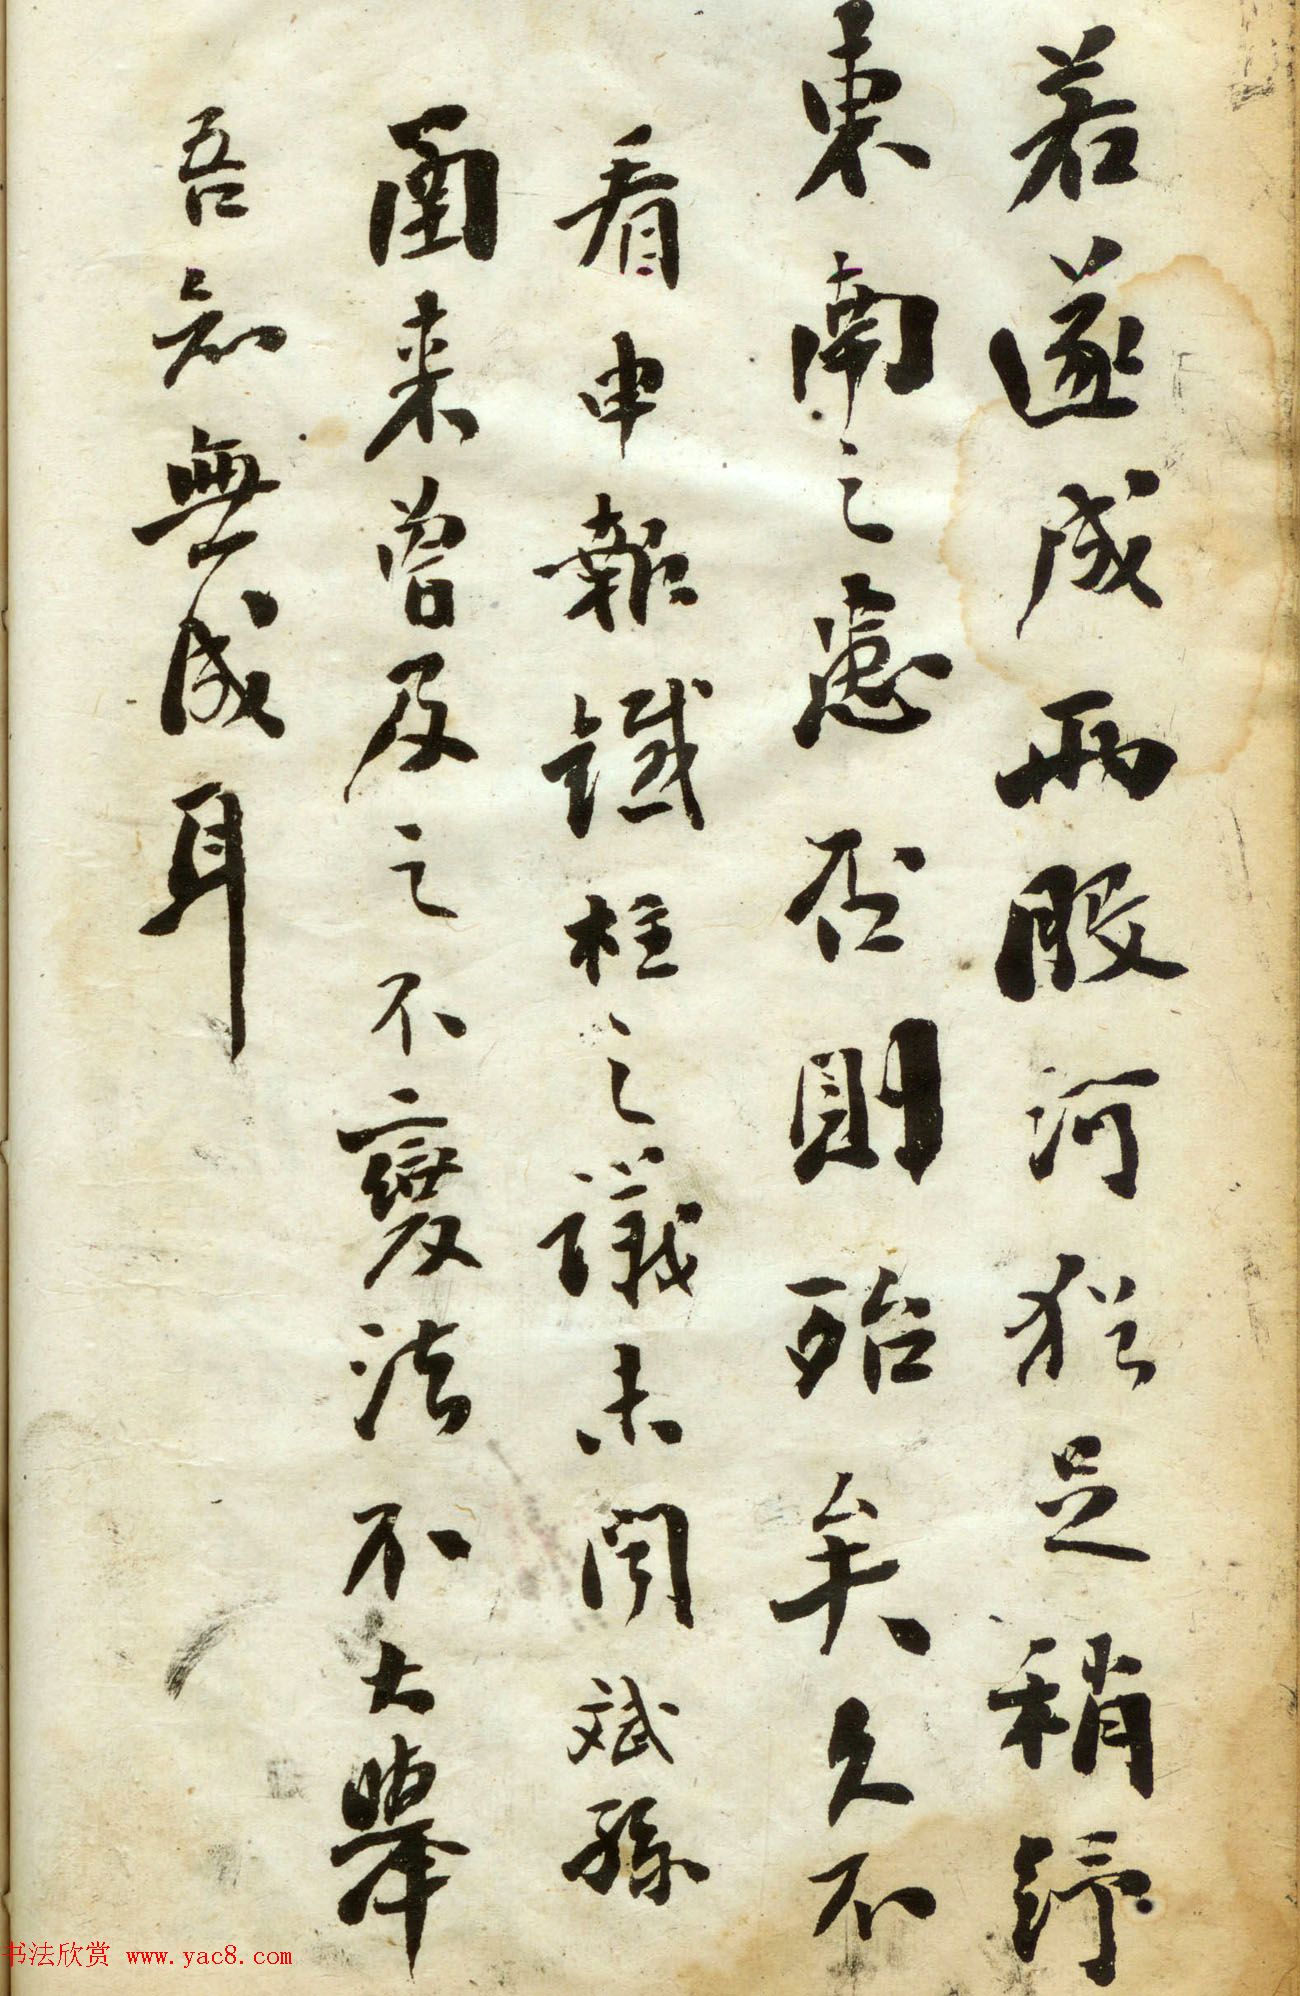 若遂成兩股河猶足稍紓
東南之患否則殆矣久不
看申報鐵柱之議未聞斌孫
函來曾及之不變法不大舉
吾知無成耳
书法欣赏 www.yac8.com